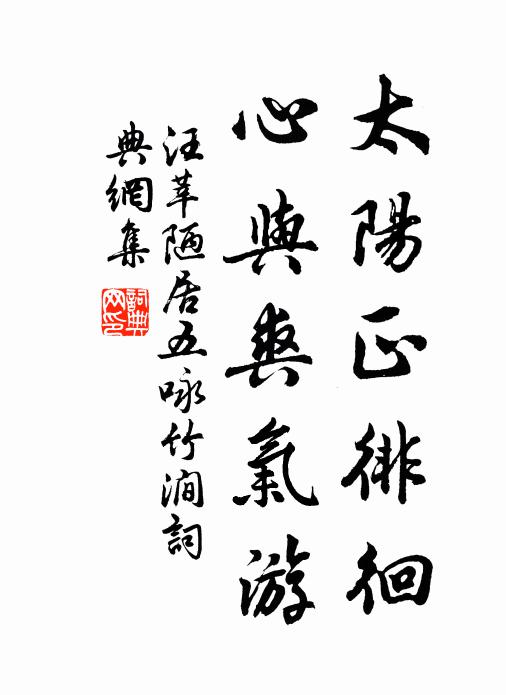 太陽正徘徊
心與爽氣游
汪莘陋居五咏竹澗詞
典網集
詞典
網印